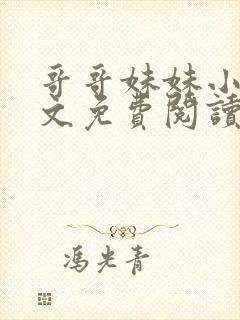 哥哥妹妹小
文免費閱讀
馮光青